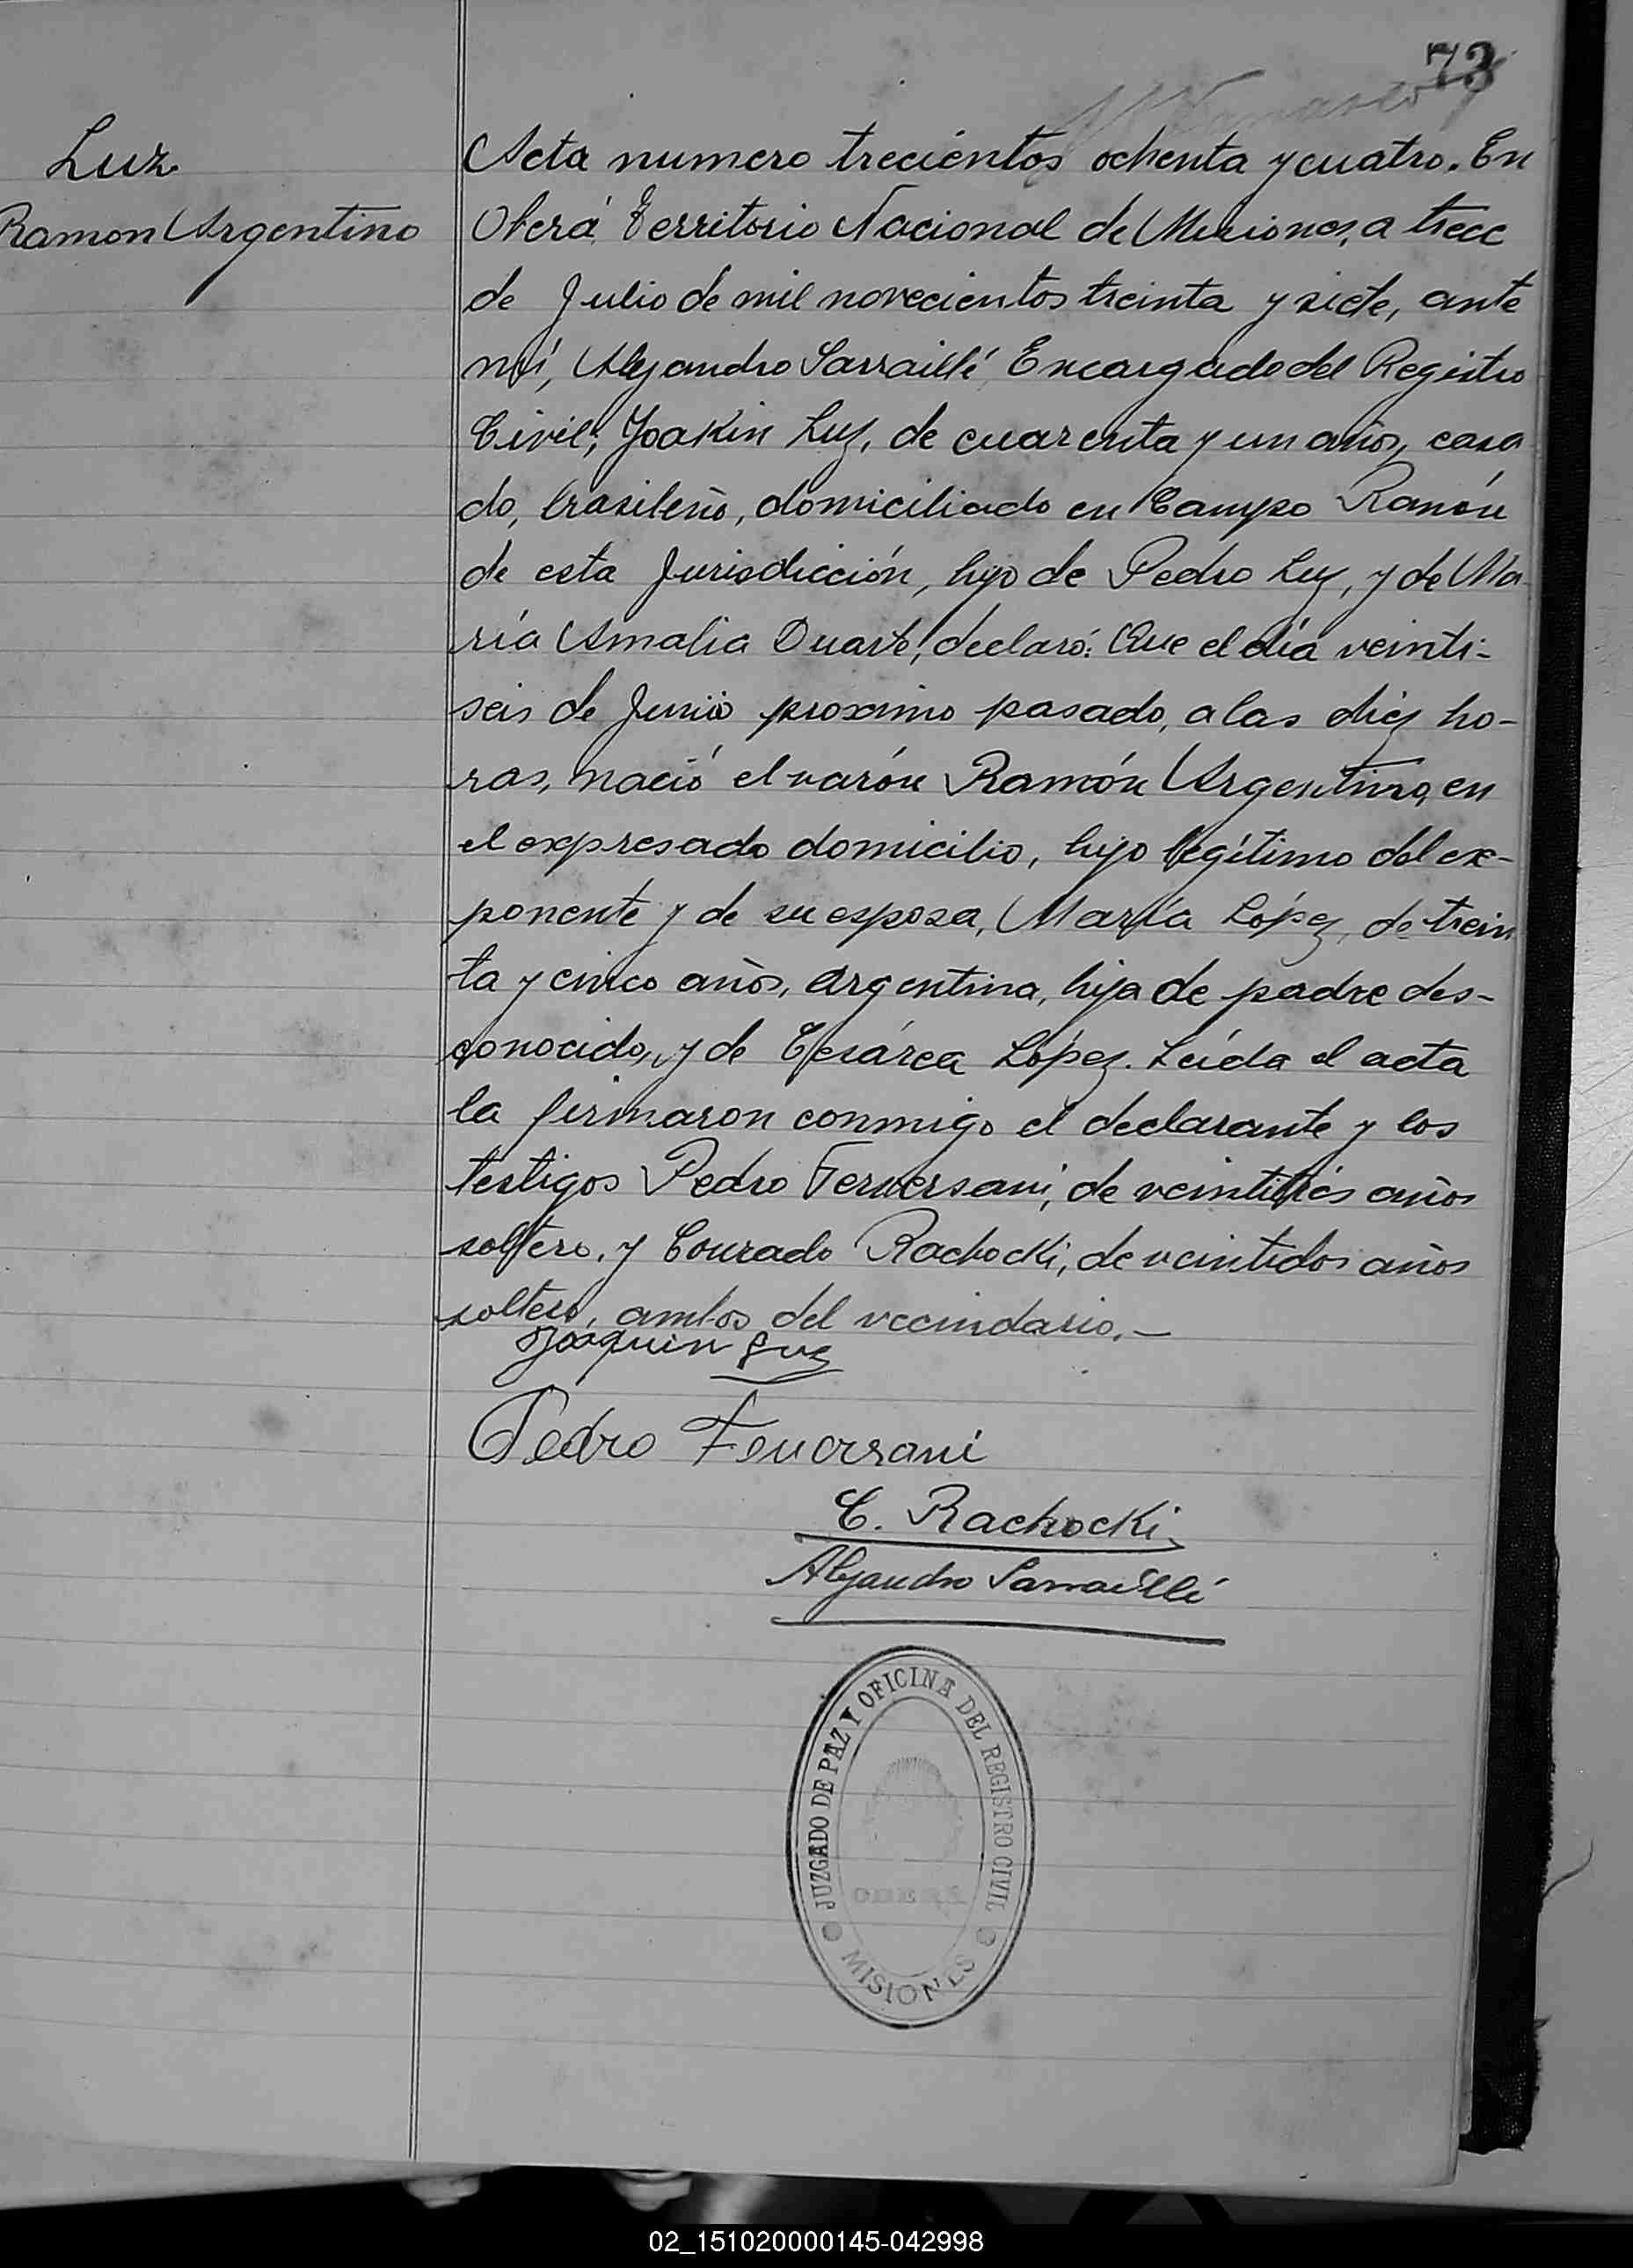 73
Luz
Ramon Argentino
Acta numero trecientos ochenta y cuatro. En
Oberá Territorio Nacional de Misiones, a trece
de Julio de mil novecientos treinta y siete, ante
mí, Alejandro Sarraillé Encargado del Registro
Civil; Joakin Luz, de cuarenta y un años, casa
do, brasileño, domiciliado en Campo Ramón
de esta Jurisdicción, hijo de Pedro Luz, y de Ma-
ría Amalia Duarte, declaró: Que el día veinti-
seis de Junio proximo pasado, a las diez ho-
ras, nació el varón Ramón Argentino, en
el expresado domicilio, hijo legítimo del ex-
ponente y de su esposa, María López, de trein
ta y cinco años, argentina, hija de padre des-
conocido, y de Cesárea López. Leída el acta
la firmaron conmigo el declarante y los
testigos Pedro Feversani, de veintitrés años
soltero, y Conrado Rachocki, de veintidos años
soltero, ambos del vecindario.—
Joaquin Luz
Pedro Feversani
C. Rachocki
Alejandro Sarraillé
JUZGADO DE PAZ Y OFICINA DEL REGISTRO CIVIL
OBERÁ
MISIONES
02_151020000145-042998